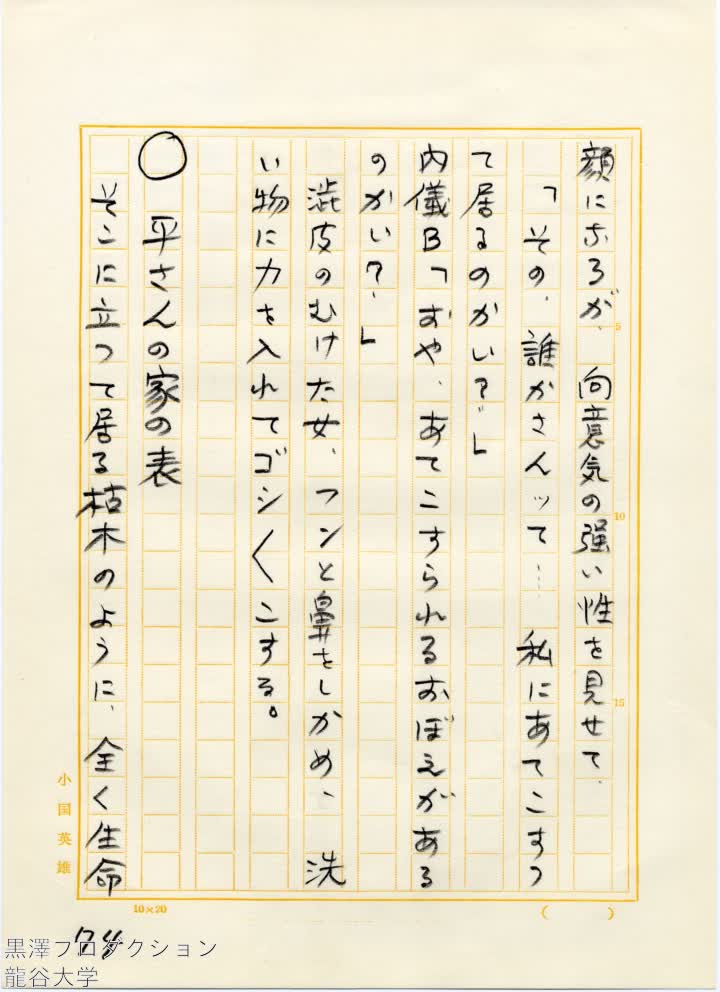 顔になるが、向意気の強い性を見せて、
「その、誰かさんッて……私にあてこすつ
て居るのかい?」
内儀B「おや、あてこすられるおぼえがある
のかい?」
渋皮のむけた女、フンと鼻をしかめ、洗
い物に力を入れてゴシ〱こする。
○ 平さんの家の表
そこに立つて居る枯木のように、全く生命
小国英雄
5
10
15
10×20
( )
黒澤プロダクション
龍谷大学